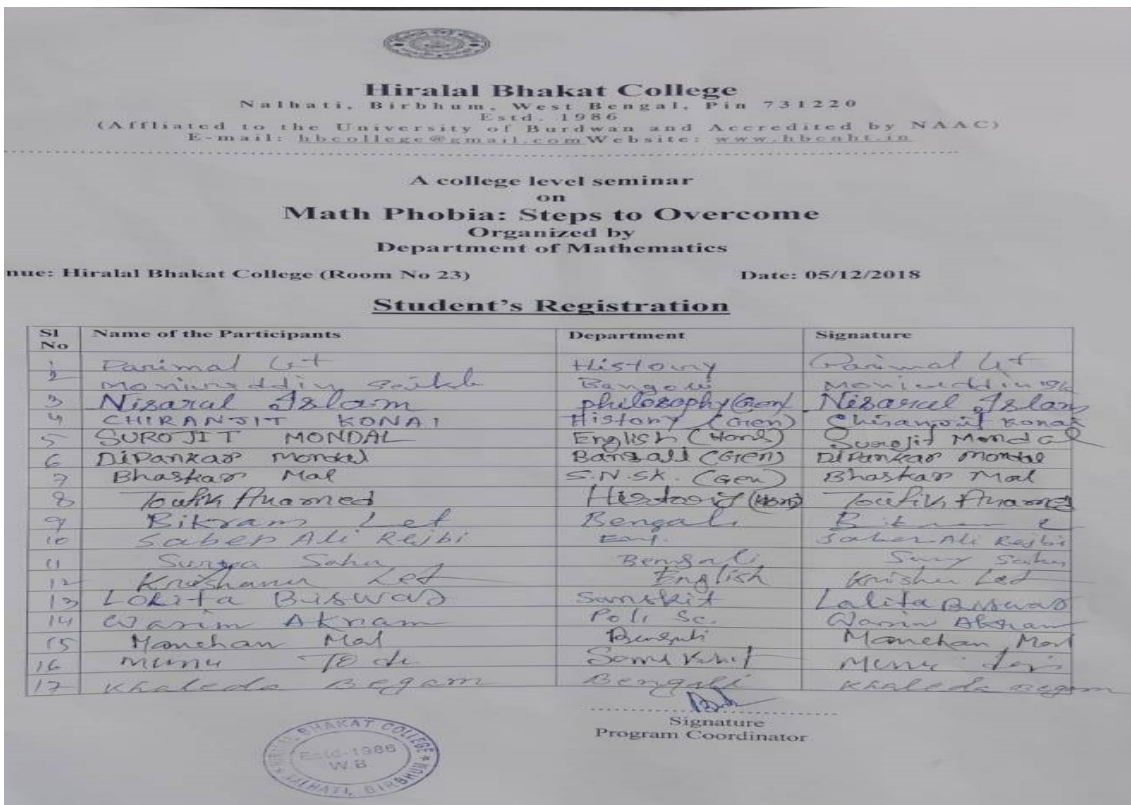 Hiralal Bhakat College
Nalhati, Birbhum, West Bengal, Pin 731220
Estd. 1986
(Affliated to the University of Burdwan and Accredited by NAAC)
E-mail: hbcollege@gmail.comWebsite: www.hbcnht.in
A college level seminar
on
Math Phobia: Steps to Overcome
Organized by
Department of Mathematics
nue: Hiralal Bhakat College (Room No 23) Date: 05/12/2018
Student's Registration
Sl No Name of the Participants Department Signature
1 Parimal Let History Parimal Let
2 Moniureddin
3 Nisarul Islam philosophy (Gen) Nisarul Islam
4 CHIRANJIT KONAI History (Gen) Chiranjit Konai
5 SUROJIT MONDAL English (Hons) Surojit Mondal
6 DiPankar Mondal (Gen) DiPankar Mondal
7 Bhaskar Mal S.N.SK. (Gen) Bhaskar Mal
8 Toufik Ahamed History (Hons) Toufik Ahamed
9 Bikram Let Bengali
10 Saber Ali Rejbi Eng. Saber Ali Rejbi
11 Surya Saha Bengali Saha
12 Krishanu Let English Let
13 LOLITA BISWAS Sanskrit Lalita Biswas
14 Wasim Akram Poli Sc. Wasim Akram
15 Manchan Mal Bengali Manchan Mal
16 Munu
17 Khaleda Begam Bengali Khaleda Begam
Signature
Program Coordinator
HIRALAL BHAKAT COLLEGE
Estd-1986
W.B
NALHATI, BIRBHUM